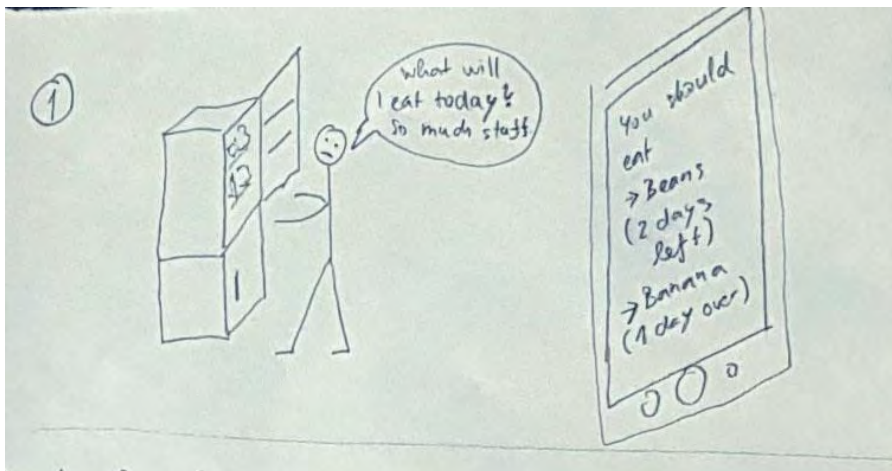 1
what will
I eat today?
So much stuff
you should
eat
→ Beans
(2 days
left)
→ Banana
(1 day over)